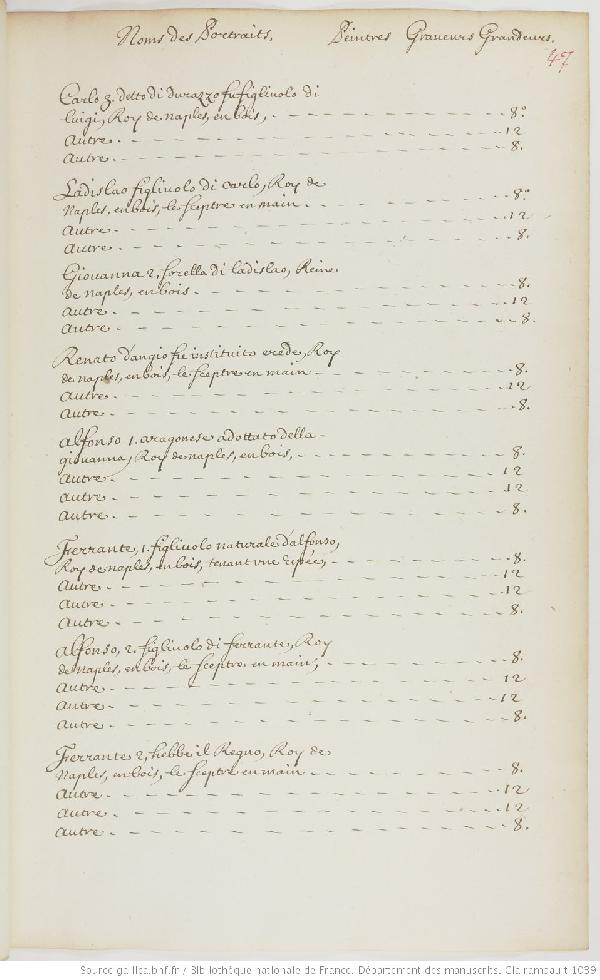 Noms des Portraits, Peintres Graveurs Grandeurs.
47
Carlo 3. detto di durazzo fu figliuolo di
luigi, Roy de naples, en bois, 8.º
Autre 12
Autre 8.
Ladislao figliuolo di carlo, Roy de
Naples, en bois, le sceptre en main 8.º
Autre 12
Autre 8.
Giouanna 2, sorella di ladislao, Reine
de naples, en bois 8.
Autre 12
Autre 8.
Renato d'angio fu instituito erede, Roy
de naples, en bois, le sceptre en main 8.
Autre 12
Autre 8.
Alfonso 1. aragonese adottato della
giouanna, Roy de naples, en bois, 8.
Autre 12
Autre 12
Autre 8.
Ferrante, 1. figliuolo naturale d'alfonso,
Roy de naples, en bois, tenant vne epée, 8.
Autre 12
Autre 12
Autre 8.
Alfonso, 2. figliuolo di ferrante, Roy
de Naples, en bois, le sceptre en main, 8.
Autre 12
Autre 12
Autre 8.
Ferrante 2, hebbe il Regno, Roy de
Naples, en bois, le sceptre en main 8.
Autre 12
Autre 12
Autre 8.
Source gallica.bnf.fr / Bibliothèque nationale de France. Département des manuscrits. Clairambault 1039